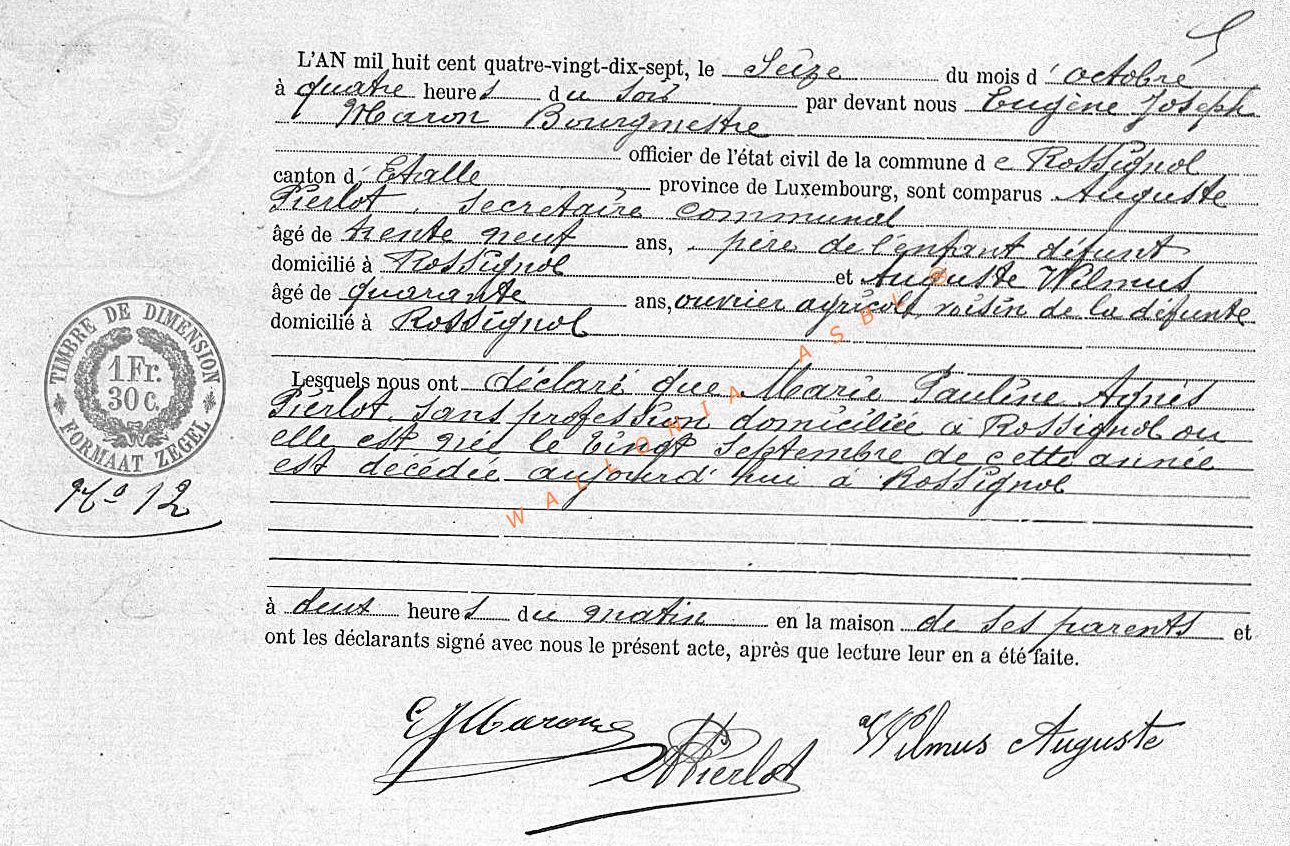 L'AN mil huit cent quatre-vingt-dix-sept, le Seize du mois d'octobre
à quatre heures du soir par devant nous Eugène Joseph
Maron Bourgmestre
officier de l'état civil de la commune de Rossignol
canton d'Etalle province de Luxembourg, sont comparus Auguste
Pierlot, secrétaire communal
âgé de trente neuf ans, père de l'enfant défunt
domicilié à Rossignol et Auguste Wilmus
âgé de quarante ans, ouvrier agricole, voisin de la défunte
domicilié à Rossignol
Lesquels nous ont déclaré que Marie Pauline Agnès
Pierlot, sans profession domiciliée à Rossignol ou
elle est née le vingt septembre de cette année
est décédée aujourd'hui à Rossignol
à deux heures du matin en la maison de ses parents et
ont les déclarants signé avec nous le présent acte, après que lecture leur en a été faite.
TIMBRE DE DIMENSION
1 Fr.
30 C.
FORMAAT ZEGEL
No 12
EJMaron
APierlot
Wilmus Auguste
WALLONIA ASBL ©